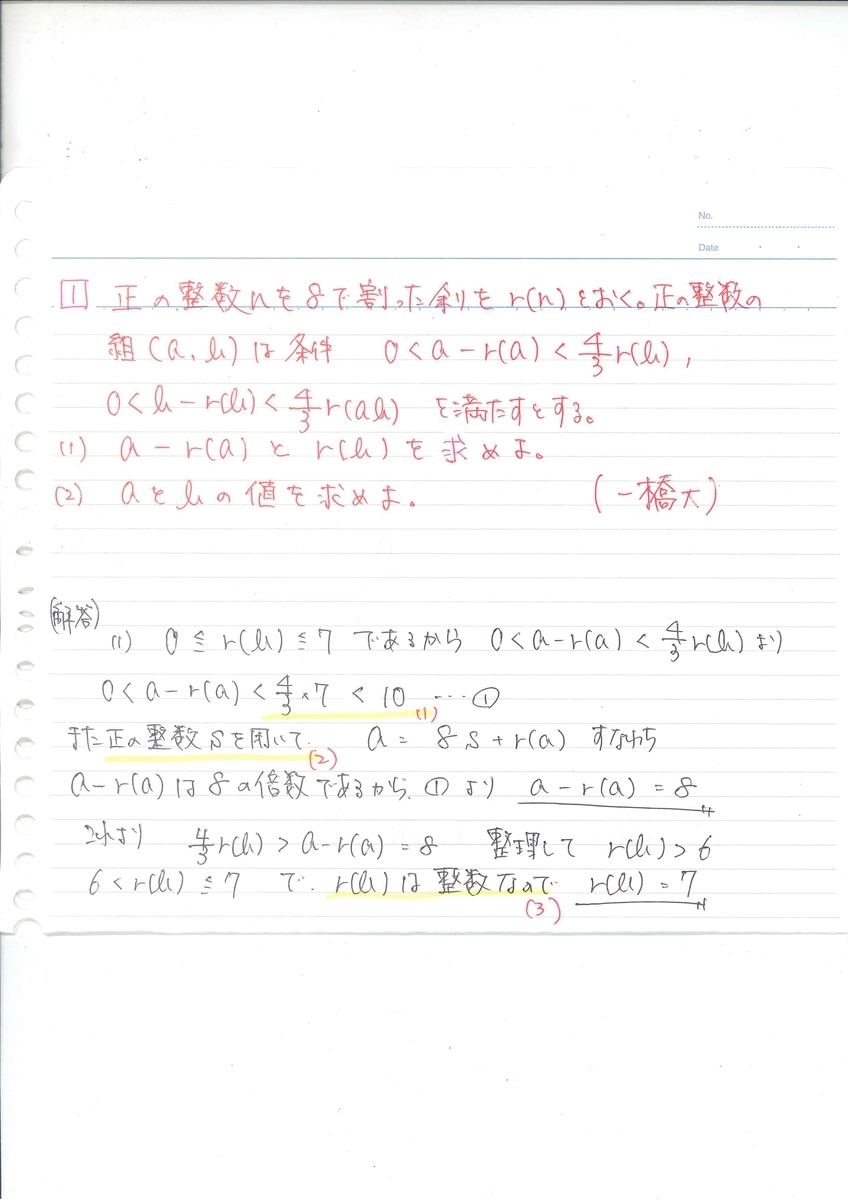 No.
Date
1 正の整数nを8で割った余りをr(n)とおく。正の整数の
組(a, b)は条件 0<a-r(a)<4/3 r(b),
0<b-r(b)<4/3 r(ab) を満たすとする。
(1) a-r(a)とr(b)を求めよ。
(2) aとbの値を求めよ。 (一橋大)
(解答)
(1) 0≦r(b)≦7 であるから 0<a-r(a)<4/3 r(b)より
0<a-r(a)<4/3×7<10 … ①
(1)
また正の整数sを用いて、 a=8s+r(a) すなわち
(2)
a-r(a)は8の倍数であるから、①より a-r(a)=8
これより 4/3 r(b)>a-r(a)=8 整理して r(b)>6
6<r(b)≦7 で、r(b)は整数なので r(b)=7
(3)